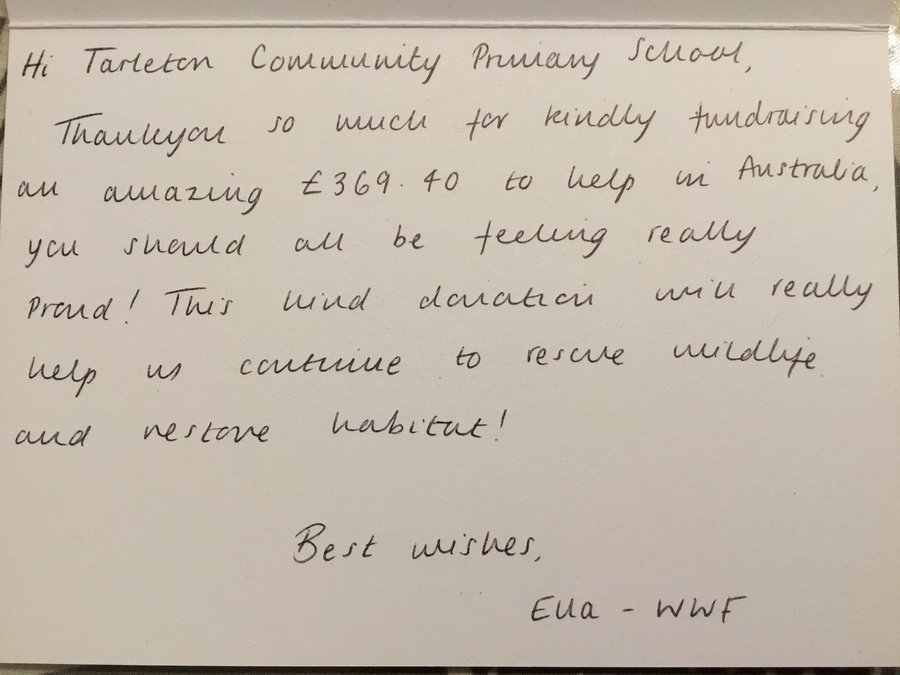 Hi Tarleton Community Primary School,
Thankyou so much for kindly fundraising
an amazing £369.40 to help in Australia,
you should all be feeling really
proud! This kind donation will really
help us continue to rescue wildlife
and restore habitat!
Best wishes,
Ella - WWF